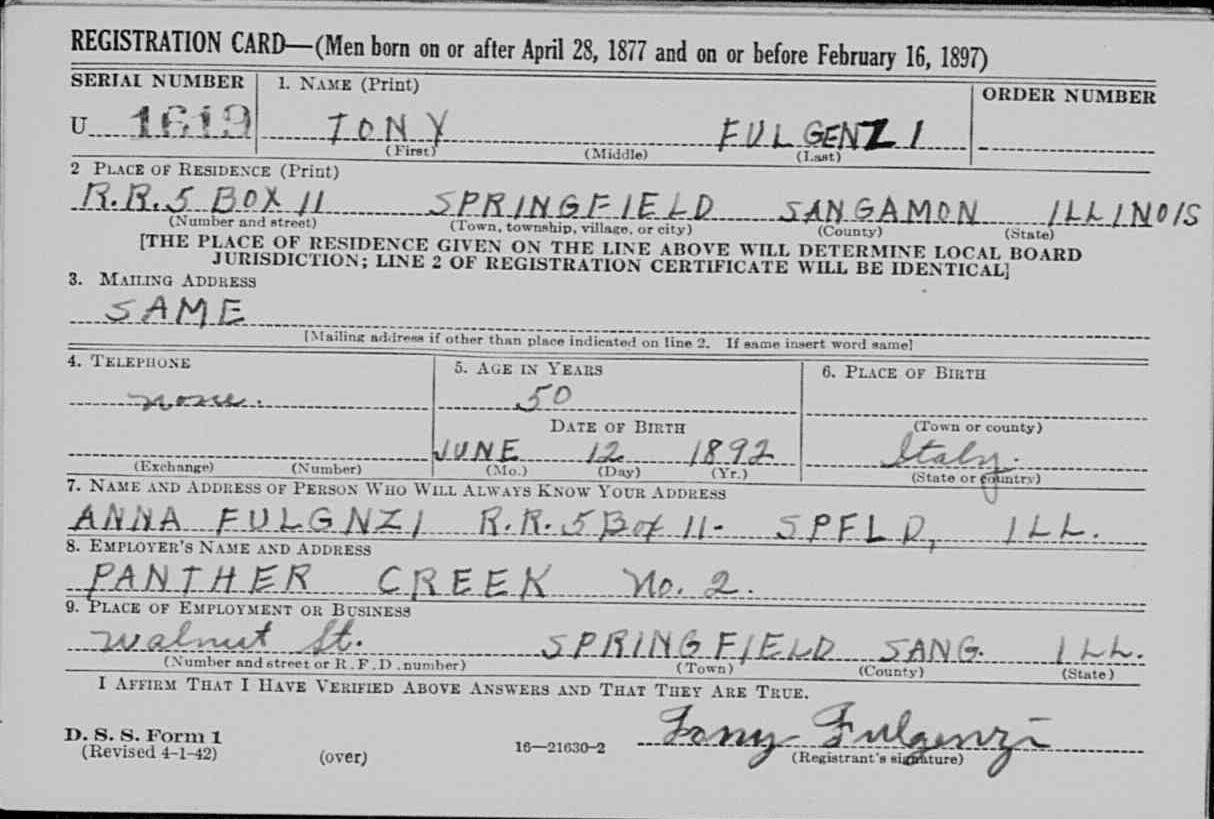 REGISTRATION CARD—(Men born on or after April 28, 1877 and on or before February 16, 1897)
SERIAL NUMBER 1. NAME (Print) ORDER NUMBER
U 1619 TONY FULGENZI
(First) (Middle) (Last)
2 PLACE OF RESIDENCE (Print)
R.R.5 BOX 11 SPRINGFIELD SANGAMON ILLINOIS
(Number and street) (Town, township, village, or city) (County) (State)
[THE PLACE OF RESIDENCE GIVEN ON THE LINE ABOVE WILL DETERMINE LOCAL BOARD
JURISDICTION; LINE 2 OF REGISTRATION CERTIFICATE WILL BE IDENTICAL]
3. MAILING ADDRESS
SAME
[Mailing address if other than place indicated on line 2. If same insert word same]
4. TELEPHONE 5. AGE IN YEARS 6. PLACE OF BIRTH
none. 50
DATE OF BIRTH (Town or county)
JUNE 12 1892 Italy.
(Exchange) (Number) (Mo.) (Day) (Yr.) (State or country)
7. NAME AND ADDRESS OF PERSON WHO WILL ALWAYS KNOW YOUR ADDRESS
ANNA FULGNZI R.R.5 Box 11- SPFLD, ILL.
8. EMPLOYER'S NAME AND ADDRESS
PANTHER CREEK No. 2.
9. PLACE OF EMPLOYMENT OR BUSINESS
Walnut St. SPRINGFIELD SANG. ILL.
(Number and street or R. F. D. number) (Town) (County) (State)
I AFFIRM THAT I HAVE VERIFIED ABOVE ANSWERS AND THAT THEY ARE TRUE.
D. S. S. Form 1 Tony Fulgenzi
(Revised 4-1-42) (over) 16—21630-2 (Registrant's signature)